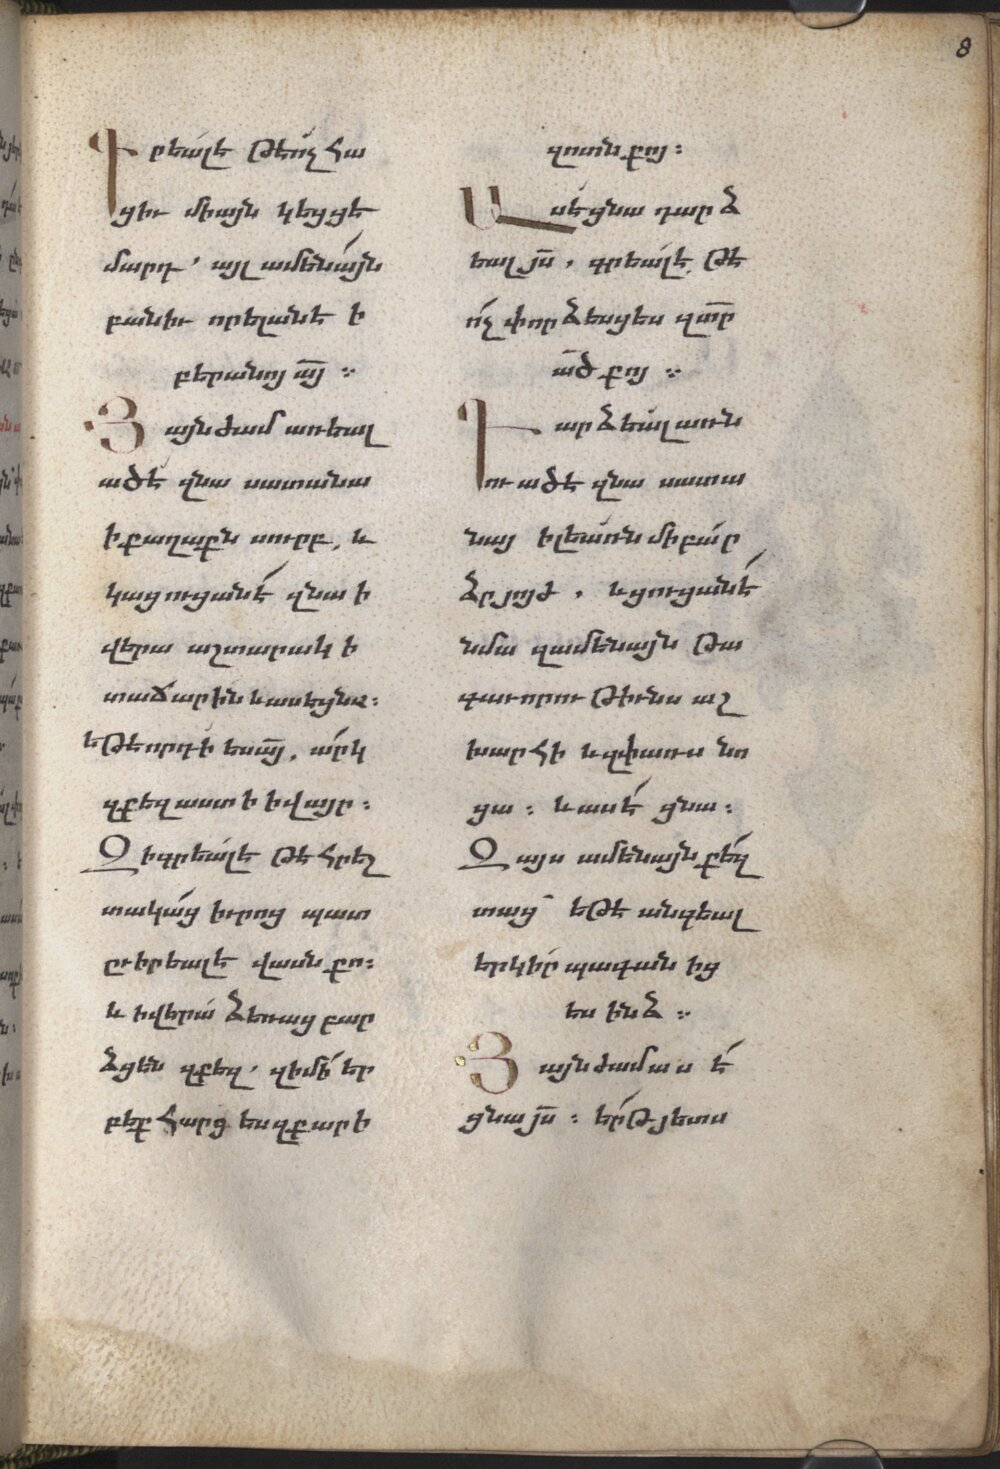 8
Գրեալ է թե ոչ հա
ցիւ միայն կեցցե
մարդ՝ այլ ամենայն
բանիւ որ ելանե ի
բերանոյ ա՟յ ։
Յայնժամ առեալ
ածե զնա սատանա
ի քաղաքն սուրբ, և
կացուցանե զնա ի
վերա աշտարակ ի
տաճարին և ասե ցնա։
եթե որդի ես ա՟յ, արկ
զքեզ աստի ի վայր։
Զի գրեալ է թե հրեշ
տակաց իւրոց պատ
ուիրեալ է վասն քո։
և ի վերա ձեռաց բար
ձցեն զքեզ՝ զի մի եր
բեք հարցես զքարի
զոտն քոյ։
Ասե ցնա դարձ
եալ յ՟ս, գրեալ է թե
ոչ փորձեսցես զտ՟ր
ա՟ծ քոյ ։
Դարձեալ առն
ու ածե զնա սատա
նայ ի լեառն մի բար
ձր յոյժ, և ցուցանե
նմա զամենայն թա
գաւորութիւնս աշ
խարհի և զփառս նո
ցա։ և ասե ցնա։
Զայս ամենայն քեզ
տաց՝ եթե անգեալ
երկիր պագանից
ես ինձ ։
Յայնժամ աս է
ցնա յ՟ս։ երթ յետս